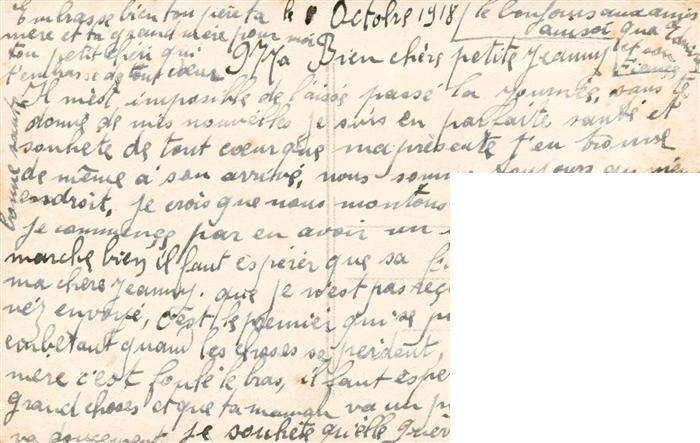 le 1 Octobre 1918
Ma Bien chère petite Jeanny
Embrasse bien ton père ta
mère et ta grand mère pour moi
ton petit chéri qui
t'embrasse de tout cœur
le bonjour aux amis
Il m'est imposible de laissé passé la journée, sans te
donné de mes nouvelles je suis en parfaite santé et
souhete de tout cœur que ma présente t'en trouve
de même à son arrivé, nous somm toujours au
endroit, je crois que nous montons
je commence par en avoir un
marche bien, il faut espérér que sa
ma chère Jeanny. que je n'est pas reç
envoyé, c'est le premier qui se p
embetant quand les choses se perdent,
mère c'est foulé le bras, il faut espe
grand choses et que ta maman va un p
va doucement je souhete qu'elle guér
bonne santé